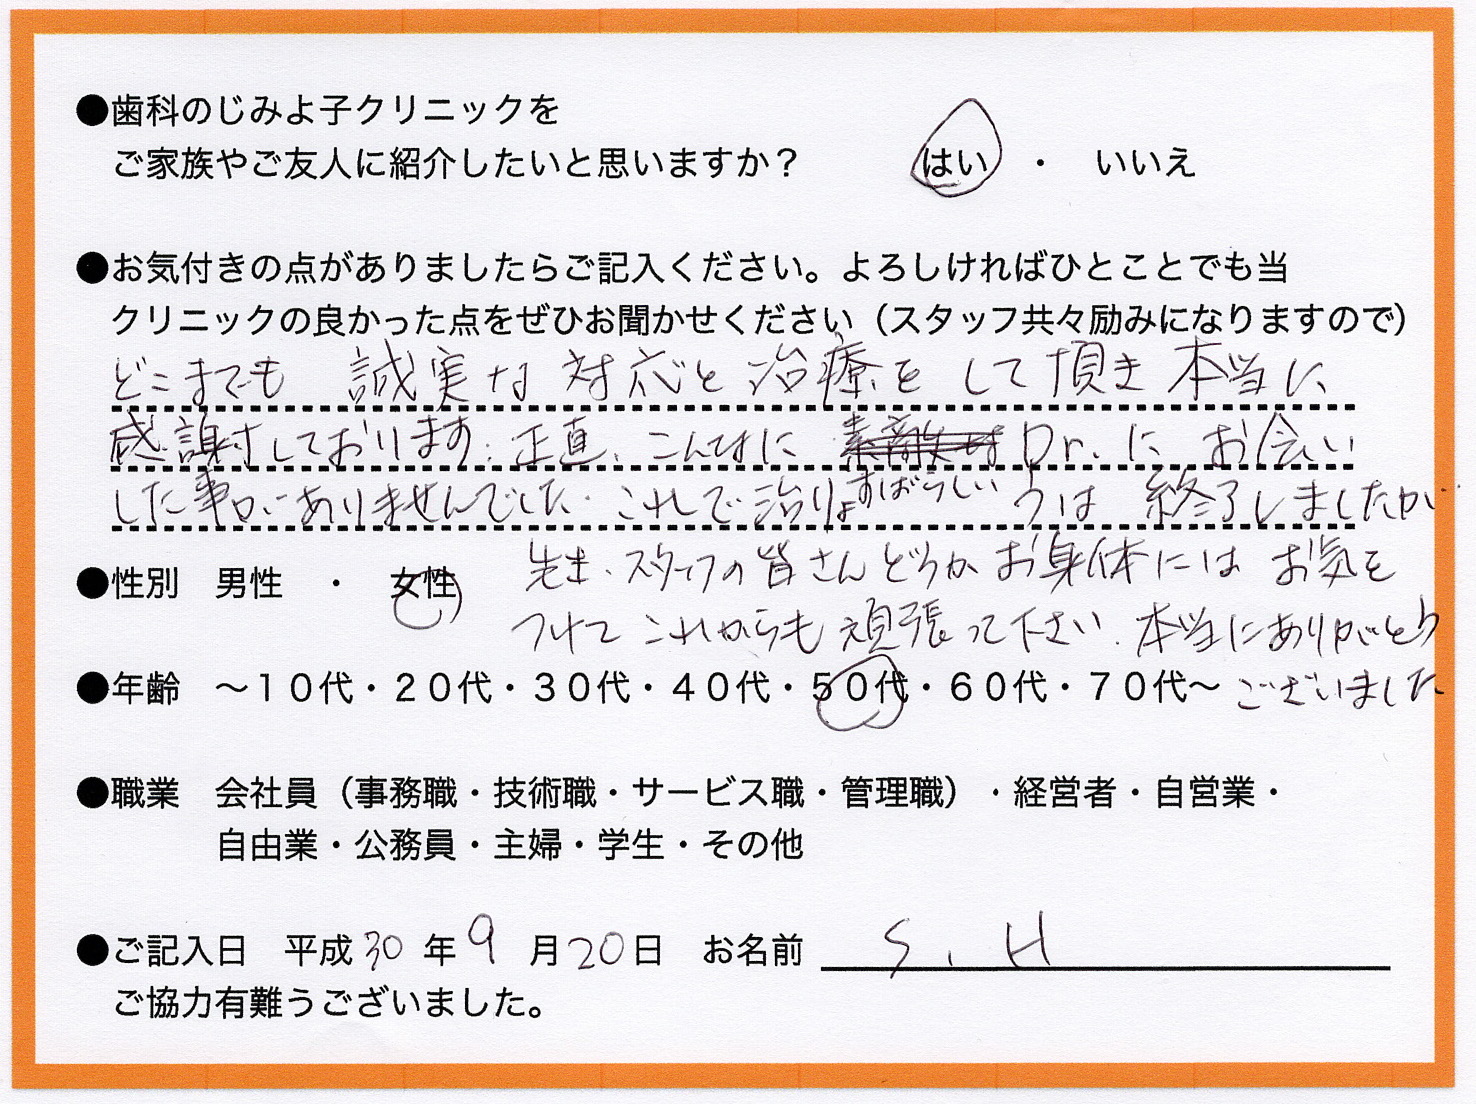 ●歯科のじみよ子クリニックを
ご家族やご友人に紹介したいと思いますか？ はい ・ いいえ
●お気付きの点がありましたらご記入ください。よろしければひとことでも当
クリニックの良かった点をぜひお聞かせください（スタッフ共々励みになりますので）
どこまでも 誠実な 対応と 治療を して頂き 本当に、
感謝しております. 正直、こんなに Dr. に お会い
すばらしい
した事がありませんでした. これで治りょうは 終了しましたが
先生、スタッフの皆さん どうか お身体には お気を
つけて これからも 頑張って下さい. 本当にありがとう
ございました
●性別 男性 ・ 女性
●年齢 〜１０代・２０代・３０代・４０代・５０代・６０代・７０代〜
●職業 会社員（事務職・技術職・サービス職・管理職）・経営者・自営業・
自由業・公務員・主婦・学生・その他
●ご記入日 平成30年9月20日 お名前 S.H
ご協力有難うございました。